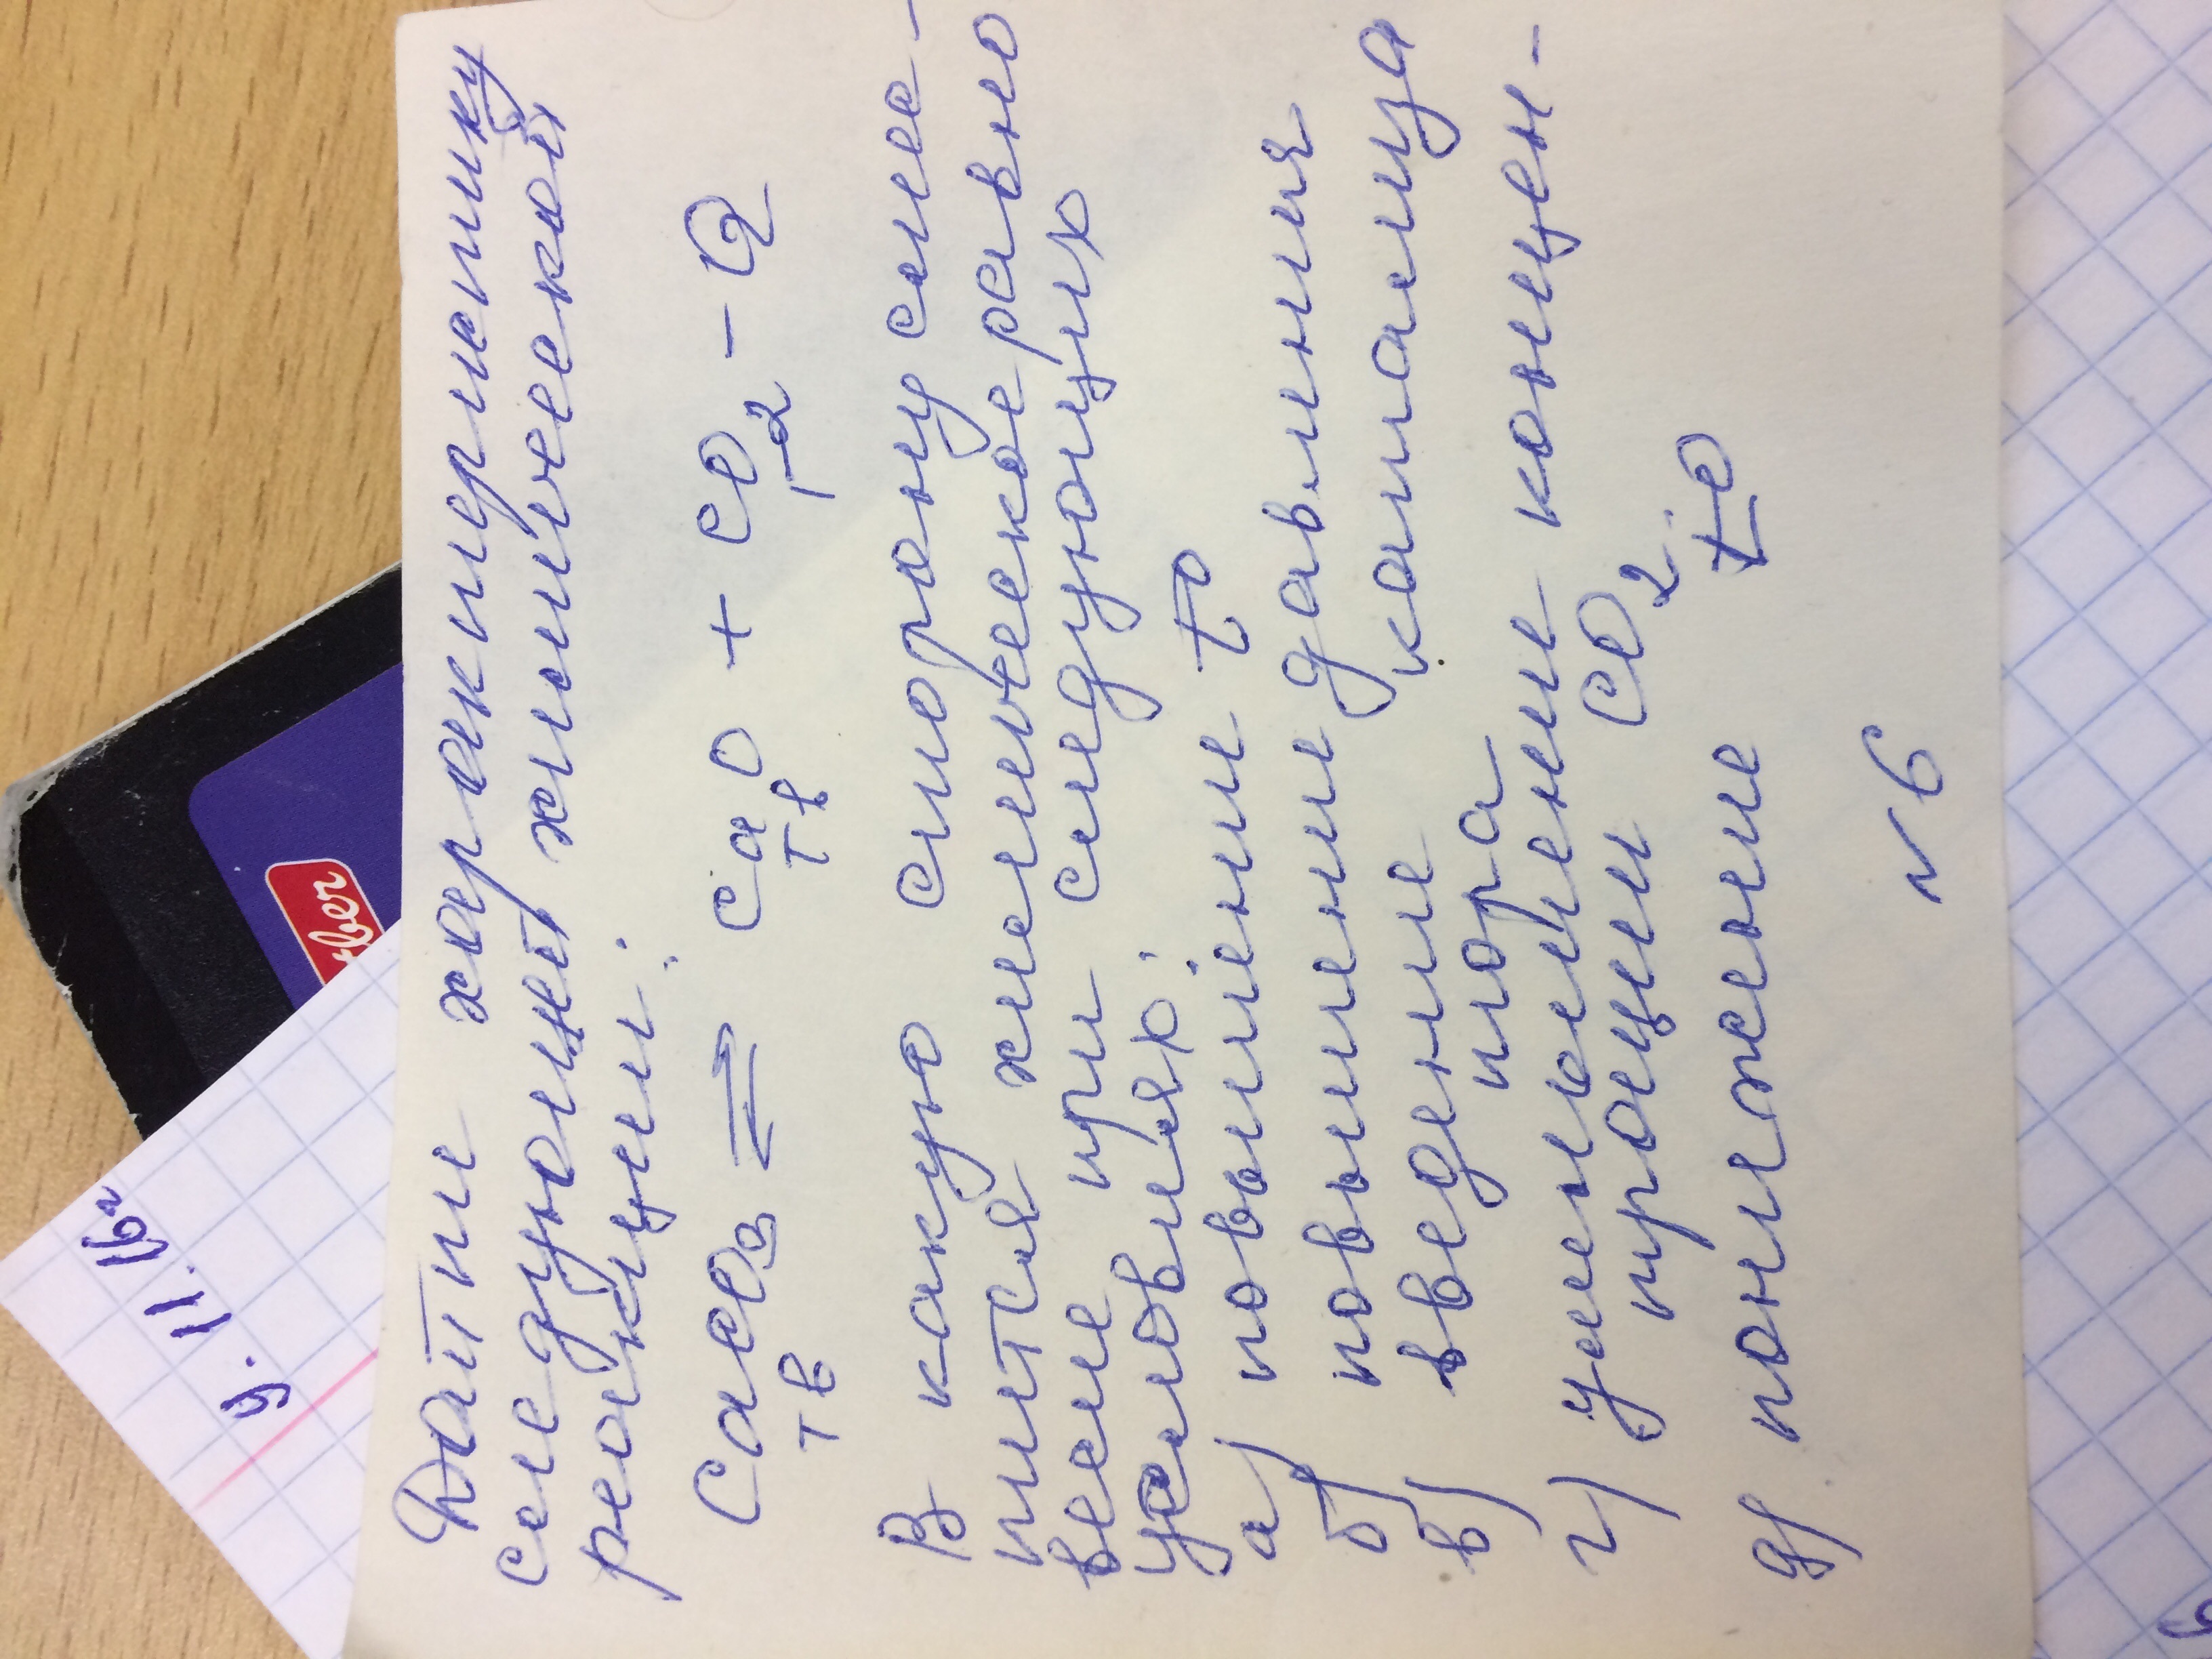 Дайте характеристику
следующей химической
реакции:
CaCO3 ⇌ CaO + CO2 - Q
тв тв г
В какую сторону сме-
нится химическое равно
весие при следующих
условиях:
а) повышение t°
б) повышение давления
в) введение катализа
тора
г) увеличение концен-
трации CO2
д) понижение t°
№6
у. 11.16г